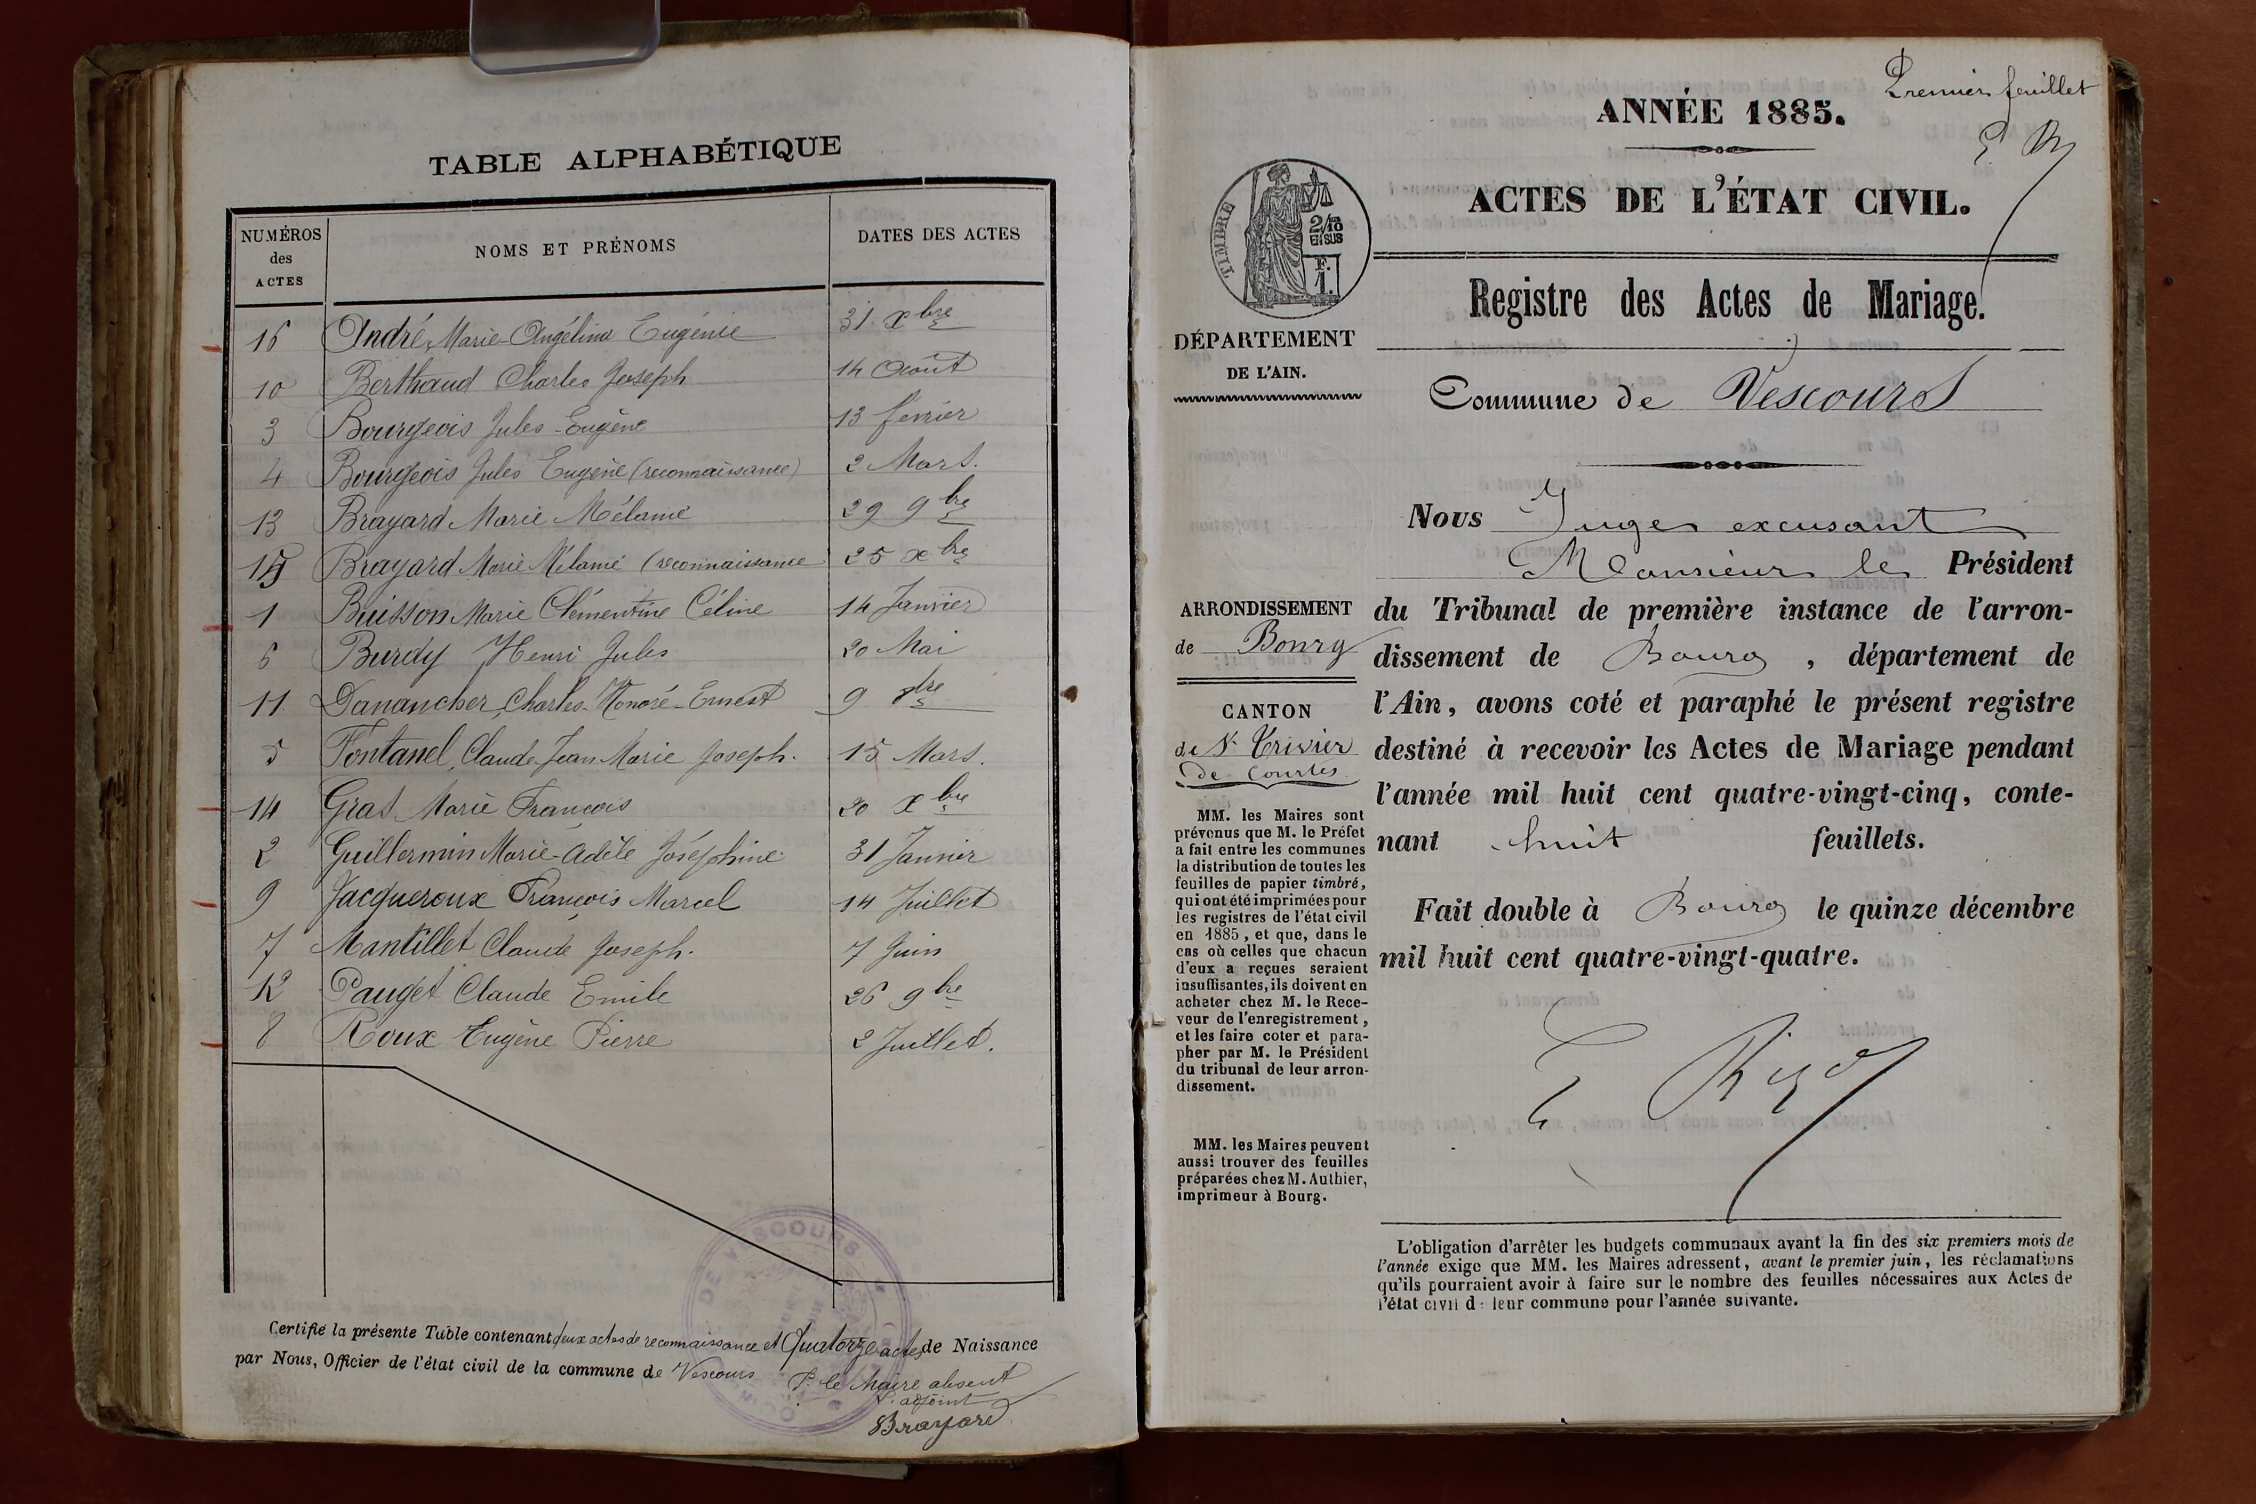 TABLE ALPHABÉTIQUE
NUMÉROS des ACTES NOMS ET PRÉNOMS DATES DES ACTES
16 André Marie-Angélina Eugénie 31 Xbre
10 Berthaud Charles Joseph 14 Août
3 Bourgeois Jules-Eugène 13 février
4 Bourgeois Jules Eugène (reconnaissance) 2 Mars.
13 Brayard Marie Mélanie 29 9bre
15 Brayard Marie Mélanie (reconnaissance 25 xbre
1 Buisson Marie Clémentine Céline 14 Janvier
6 Burdy Henri Jules 20 Mai
11 Danancher, Charles-Honoré-Ernest 9 8bre
5 Fontanel, Claude Jean Marie Joseph. 15 Mars.
14 Gras Marie François 20 Xbre
2 Guillermin Marie-Adèle Joséphine 31 Janvier
9 Jacqueroux François Marcel 14 Juillet
7 Mantillet Claude Joseph. 7 Juin
12 Pauget Claude Emile 26 9bre
8 Roux Eugène Pierre 2 Juillet.
Certifié la présente Table contenant deux actes de reconnaissance et Quatorze actes de Naissance
par Nous, Officier de l'état civil de la commune de Vescours
P. le Maire absent
L'adjoint
Brayard
DE VESCOURS
Premier feuillet
ANNÉE 1885.
ACTES DE L'ÉTAT CIVIL.
TIMBRE
2/10
EN SUS
F.
1.
Registre des Actes de Mariage.
DÉPARTEMENT
DE L'AIN.
Commune de Vescours
Nous Juge excusant
Monsieur le Président
du Tribunal de première instance de l'arron-
dissement de Bourg, département de
l'Ain, avons coté et paraphé le présent registre
destiné à recevoir les Actes de Mariage pendant
l'année mil huit cent quatre-vingt-cinq, conte-
nant huit feuillets.
Fait double à Bourg le quinze décembre
mil huit cent quatre-vingt-quatre.
ARRONDISSEMENT
de Bourg
CANTON
de St Trivier
de Courtes
MM. les Maires sont
prévenus que M. le Préfet
a fait entre les communes
la distribution de toutes les
feuilles de papier timbré,
qui ont été imprimées pour
les registres de l'état civil
en 1885, et que, dans le
cas où celles que chacun
d'eux a reçues seraient
insuffisantes, ils doivent en
acheter chez M. le Rece-
veur de l'enregistrement,
et les faire coter et para-
pher par M. le Président
du tribunal de leur arron-
dissement.
MM. les Maires peuvent
aussi trouver des feuilles
préparées chez M. Authier,
imprimeur à Bourg.
L'obligation d'arrêter les budgets communaux avant la fin des six premiers mois de
l'année exige que MM. les Maires adressent, avant le premier juin, les réclamations
qu'ils pourraient avoir à faire sur le nombre des feuilles nécessaires aux Actes de
l'état civil de leur commune pour l'année suivante.